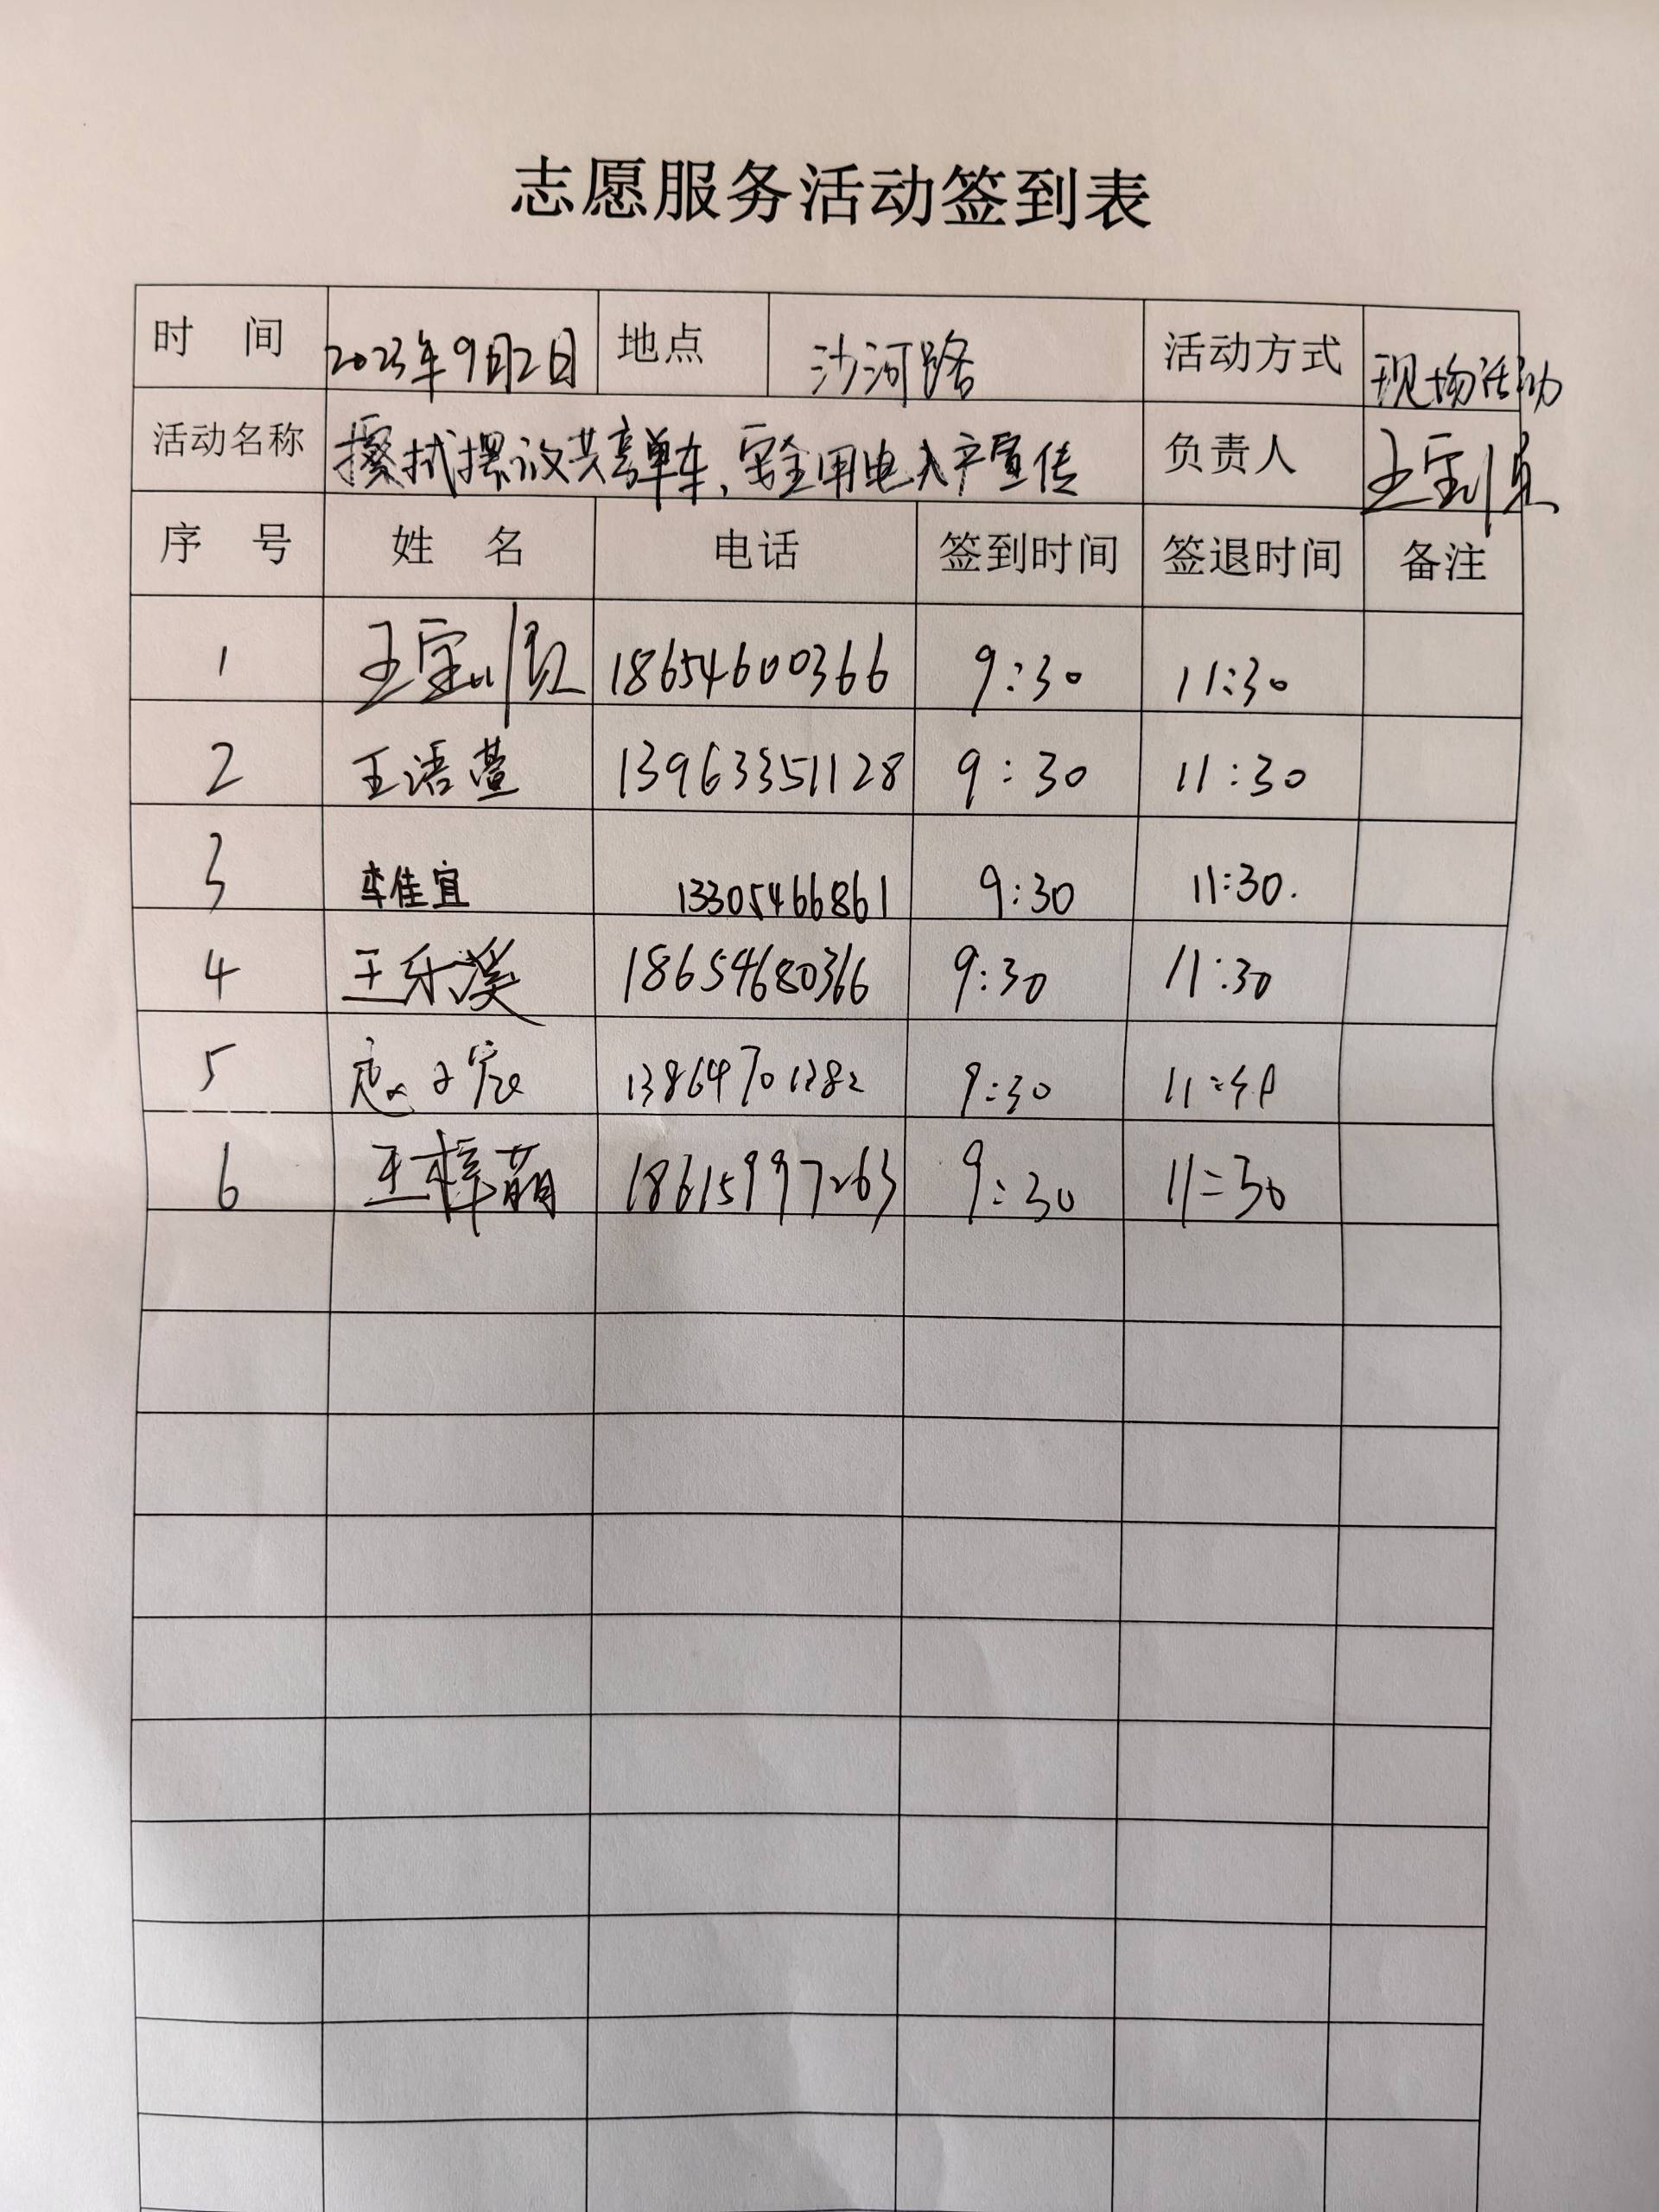 志愿服务活动签到表
时 间 2023年9月2日 地点 沙河路 活动方式 现场活动
活动名称 擦拭摆放共享单车,安全用电入户宣传 负责人 王宝顺
序 号 姓 名 电话 签到时间 签退时间 备注
1 王宝顺 18654600366 9:30 11:30
2 王语萱 13963351128 9:30 11:30
3 李佳宜 13305466861 9:30 11:30.
4 王乐溪 18654680366 9:30 11:30
5 13864701282 9:30
6 王梓萌 18615997263 9:30 11:30